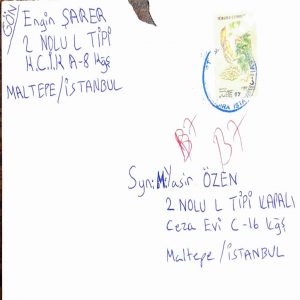 GÖN/ Engin ŞARER
2 NOLU L TİPİ
K.C.İ.K A-8 Kğş
MALTEPE/İSTANBUL
B7 B7
Syn: M.Yasir ÖZEN
2 NOLU L TİPİ KAPALI
Ceza Evi C-16 Kğş
Maltepe/İSTANBUL